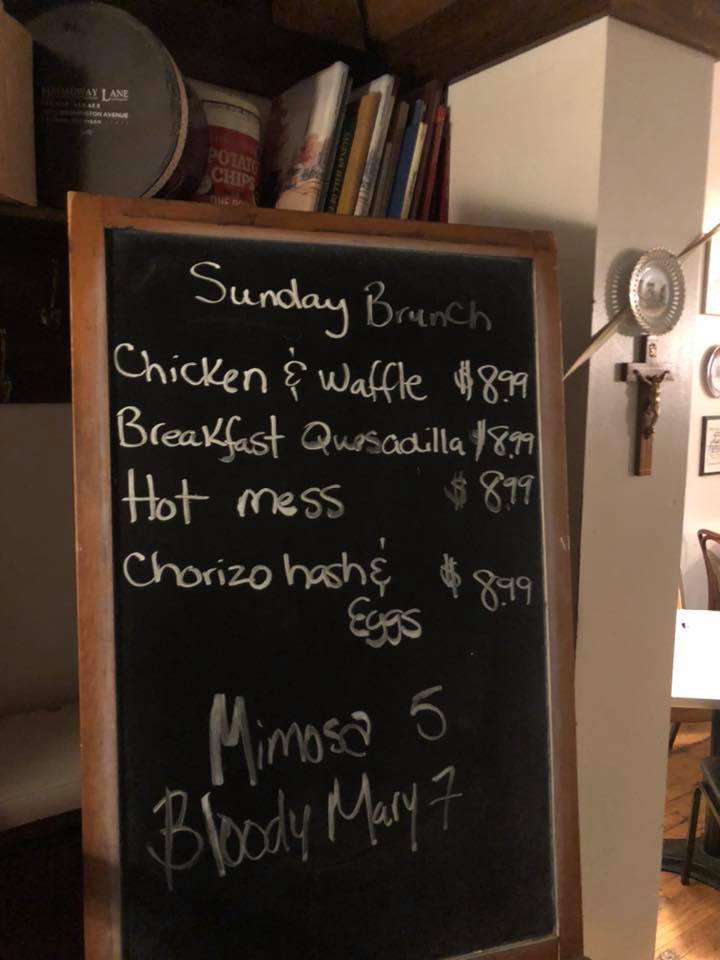 BROADWAY LANE
WASHINGTON AVENUE
POTATO
CHIPS
Sunday Brunch
Chicken & Waffle $8.99
Breakfast Quesadilla $8.99
Hot mess $8.99
Chorizo hash & $8.99
Eggs
Mimosa 5
Bloody Mary 7